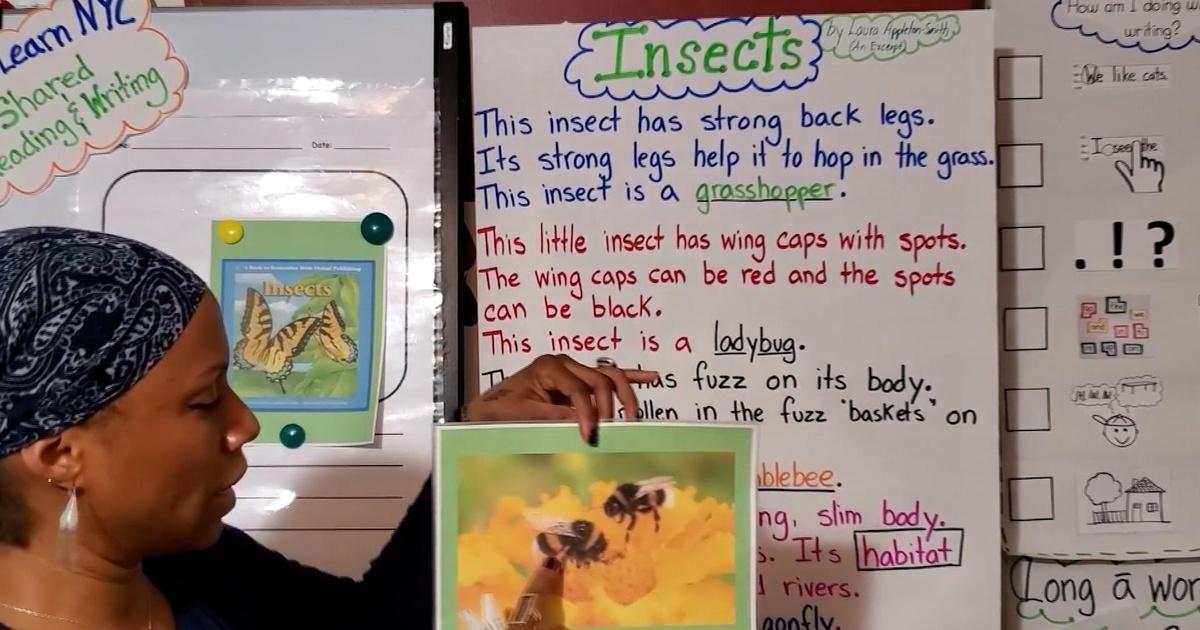 Learn NYC
Shared
Reading & Writing
Date:
Insects
Insects
by Laura Appleton-Smith
(An Excerpt)
This insect has strong back legs.
Its strong legs help it to hop in the grass.
This insect is a grasshopper.
This little insect has wing caps with spots.
The wing caps can be red and the spots
can be black.
This insect is a ladybug.
has fuzz on its body.
ollen in the fuzz "baskets" on
blebee.
ng, slim body.
s. Its habitat
d rivers.
gonfly.
How am I doing w
writing?
We like cats.
I see the
. ! ?
Long ā wor